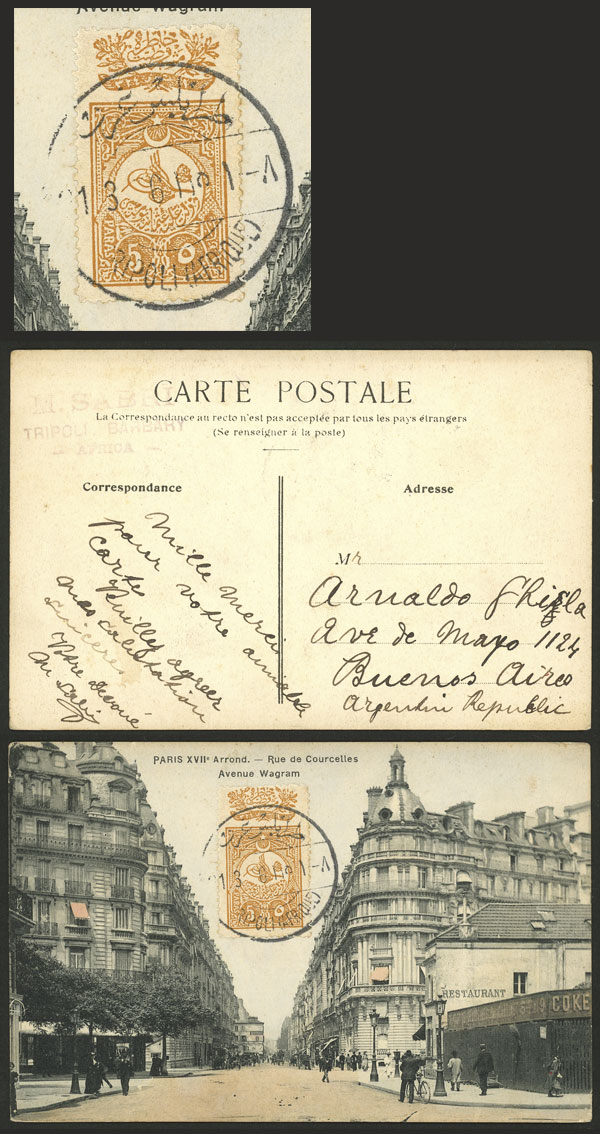 Avenue Wagram
1 3 6
PARA 5
TRIPOLI (AFRIQUE)
CARTE POSTALE
La Correspondance au recto n'est pas acceptée par tous les pays étrangers
(Se renseigner à la poste)
TRIPOLI BARBARY
AFRICA
Correspondance
Mille merci
pour votre aimable
carte
Veuillez agreer
mes salutation
sinceres
Votre devoué
Adresse
Mr
Arnaldo Ghigla
Ave de Mayo 1124
Buenos Aires
Argentin Republic
PARIS XVIIe Arrond. — Rue de Courcelles
Avenue Wagram
RESTAURANT
COKE